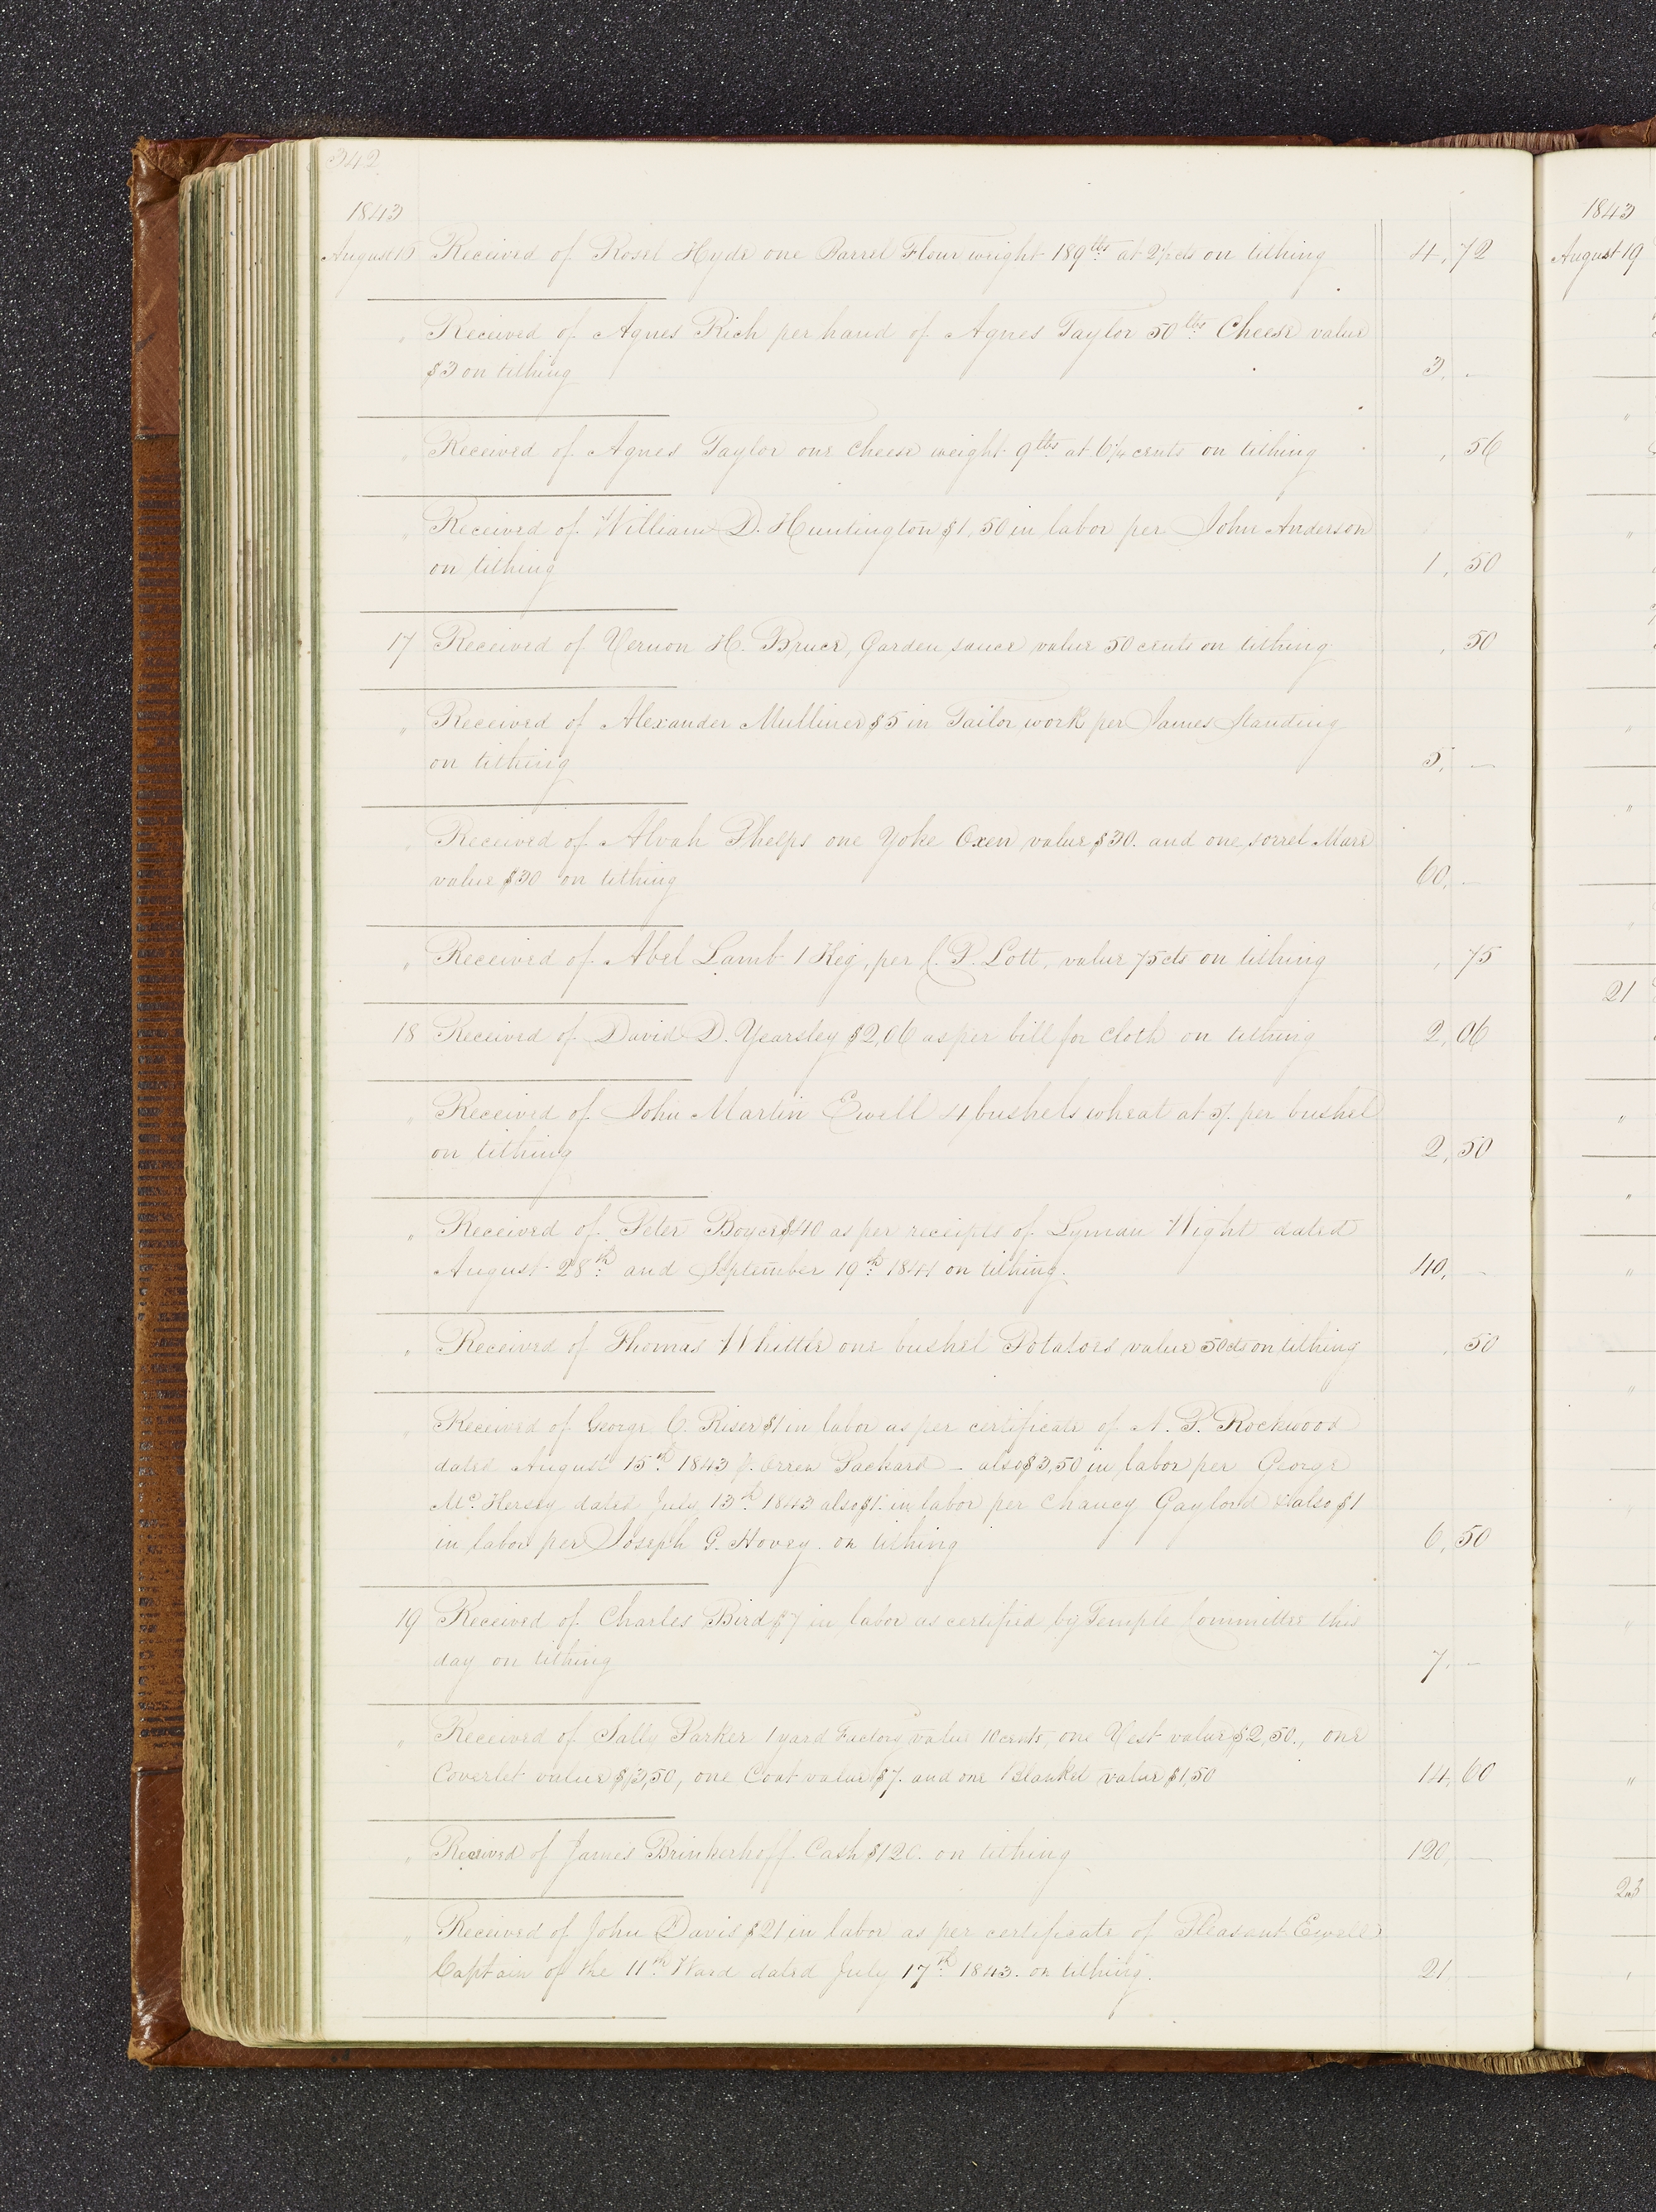 342
1843
August 16 Received of Rosel Hyde one Barrel Flour weight 189 lbs at 2 1/2 cts on tithing 4, 72
" Received of Agnes Rich per hand of Agnes Taylor 50 lbs Cheese value
$3 on tithing 3, -
" Received of Agnes Taylor one cheese weight 9 lbs at 6 1/4 cents on tithing , 56
" Received of William D. Huntington $1,50 in labor per John Anderson
on tithing 1, 50
17 Received of Vernon H. Bruce, Garden sauce value 50 cents on tithing , 50
" Received of Alexander Mulliner $5 in Tailor work per James Standing
on tithing 5, -
" Received of Alvah Phelps one Yoke Oxen value $30. and one sorrel Mare
value $30 on tithing 60, -
" Received of Abel Lamb 1 Keg, per C. P. Lott, value 75 cts on tithing , 75
18 Received of David D. Yearsley $2,06 as per bill for cloth on tithing 2, 06
" Received of John Martin Ewell 4 bushels wheat at 5/. per bushel
on tithing 2, 50
" Received of Peter Boyce $40 as per receipts of Lyman Wight dated
August 28th and September 19th 1841 on tithing. 40, -
" Received of Thomas Whittle one bushel Potatoes value 50 cts on tithing , 50
" Received of George C. Riser $1 in labor as per certificate of A. P. Rockwood
dated August 15th 1843 p. Orren Packard - also $3,50 in labor per George
Mc. Kersey dated July 13th 1843 also $1. in labor per Chancy Gaylord & also $1
in labor per Joseph G. Hovey. on tithing 6, 50
19 Received of Charles Bird $7 in labor as certified by Temple Committee this
day on tithing 7. -
" Received of Sally Parker 1 yard Factory value 10 cents, one Vest value $2,50., one
Coverlet value $3,50, one Coat value $7. and one Blanket value $1,50 14, 60
" Received of James Brinkerhoff Cash $120. on tithing 120, -
" Received of John Davis $21 in labor as per certificate of Pleasant Ewell
Captain of the 11th Ward dated July 17th 1843. on tithing. 21 -
1843
August 19
21
23